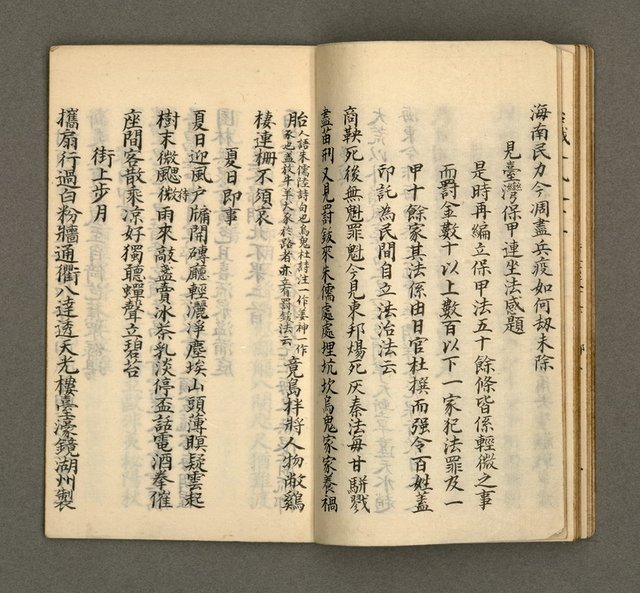 海南民力今凋盡兵疫如何劫未除
見臺灣保甲連坐法感題
是時再編立保甲法五十餘條皆係輕微之事
而罰金數十以上數百以下一家犯法罪及一
甲十餘家其法係由日官杜撰而强令百姓蓋
印託為民間自立法治法云
商鞅死後無魁罪魁今見東邦煬死灰秦法毎甘駢戮
盡苗刑又見罰鈑來朱儒處處埋坑坎烏鬼家家養禍
胎人語朱儒陸詩句也烏鬼杜詩注一作姜神一作
豕也蓋牧牛羊犬豕於路者亦立有罰錢法云竟鳥拌將人物敝鷄
棲連柵不須哀
夏日即事
夏日迎風户牖開磚廳輕灑凈塵埃山頭薄瞑疑雲起
樹末微颸微待雨來敲盞賣冰茶乳淡停盃話電酒奉催
座間客散乘凉好獨聽蟬聲立碧苔
街上步月
攜扇行過白粉牆通衢八達透天光樓臺濠鏡湖州製